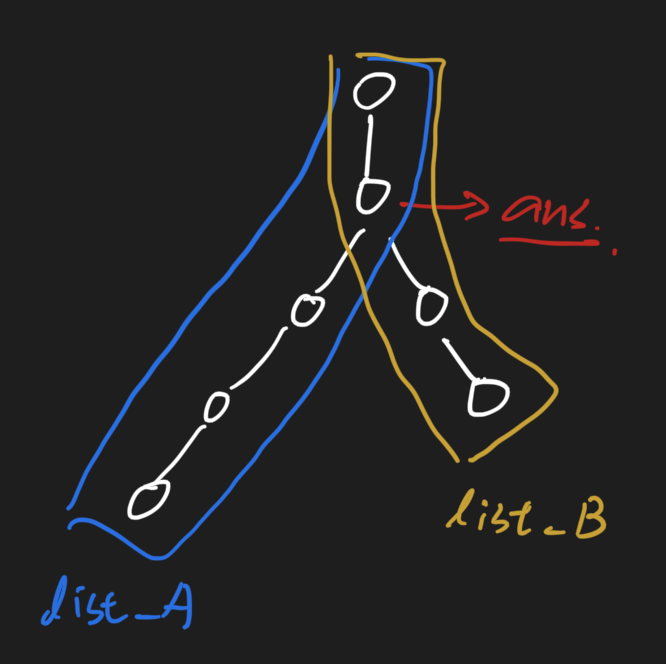 ans.
list_B
list_A